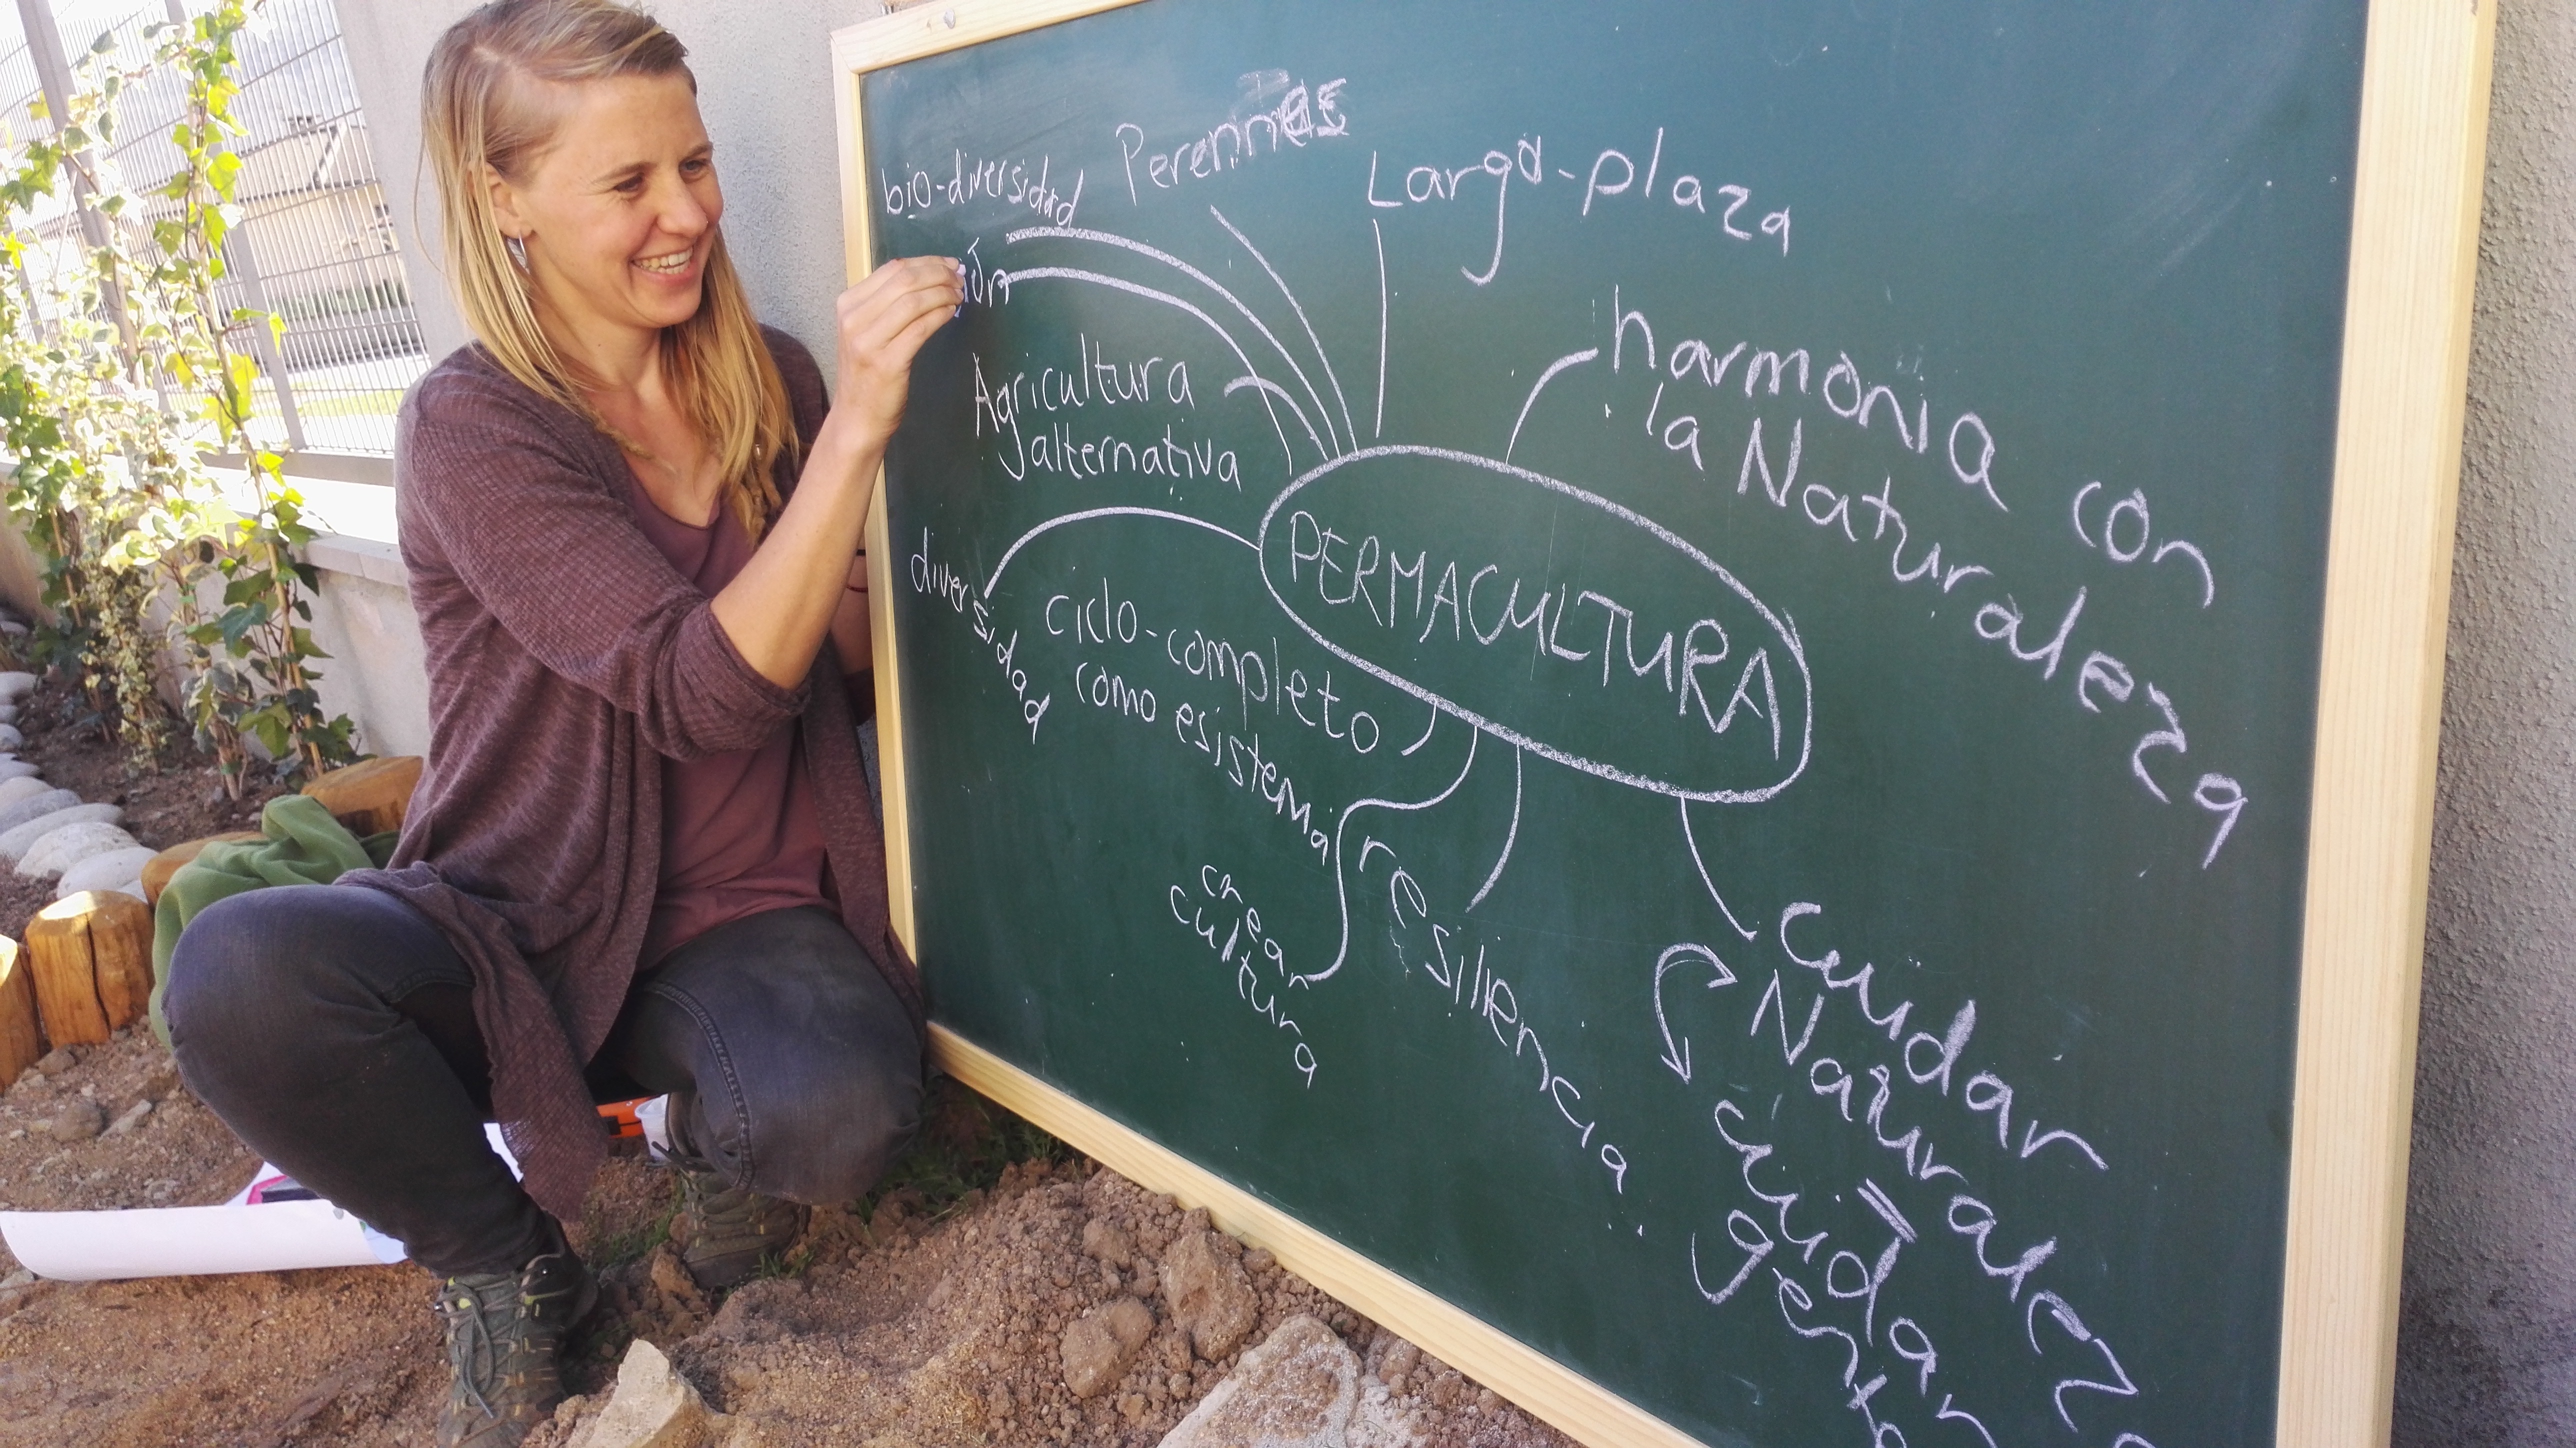 bio-diversidad
Perennes
Largo-plaza
harmonia con
la Naturaleza
Agricultura
alternativa
PERMACULTURA
diversidad
ciclo-completo
como esistema
crear
cultura
resiliencia
cuidar
Naturaleza
=
cuidar